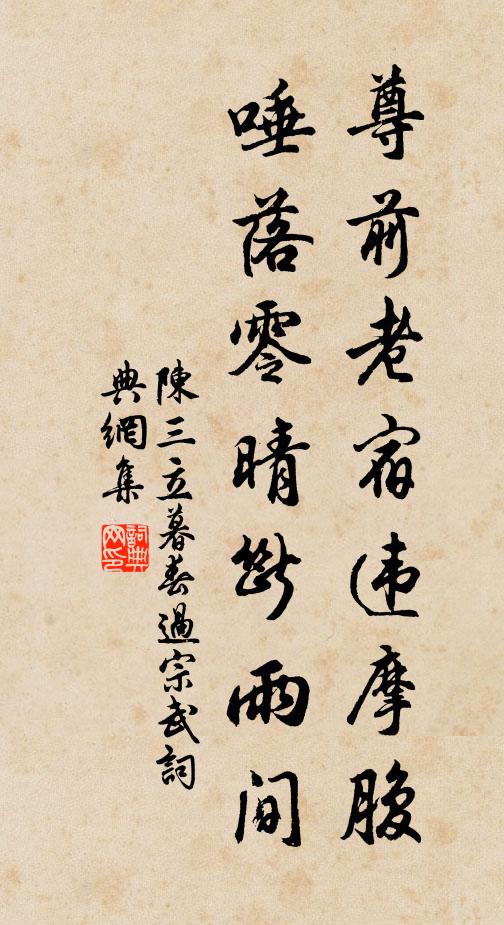 尊前老宿违摩腹
唾落零晴断雨間
陳三立暮春過宗武詞
典網集
詞典網印